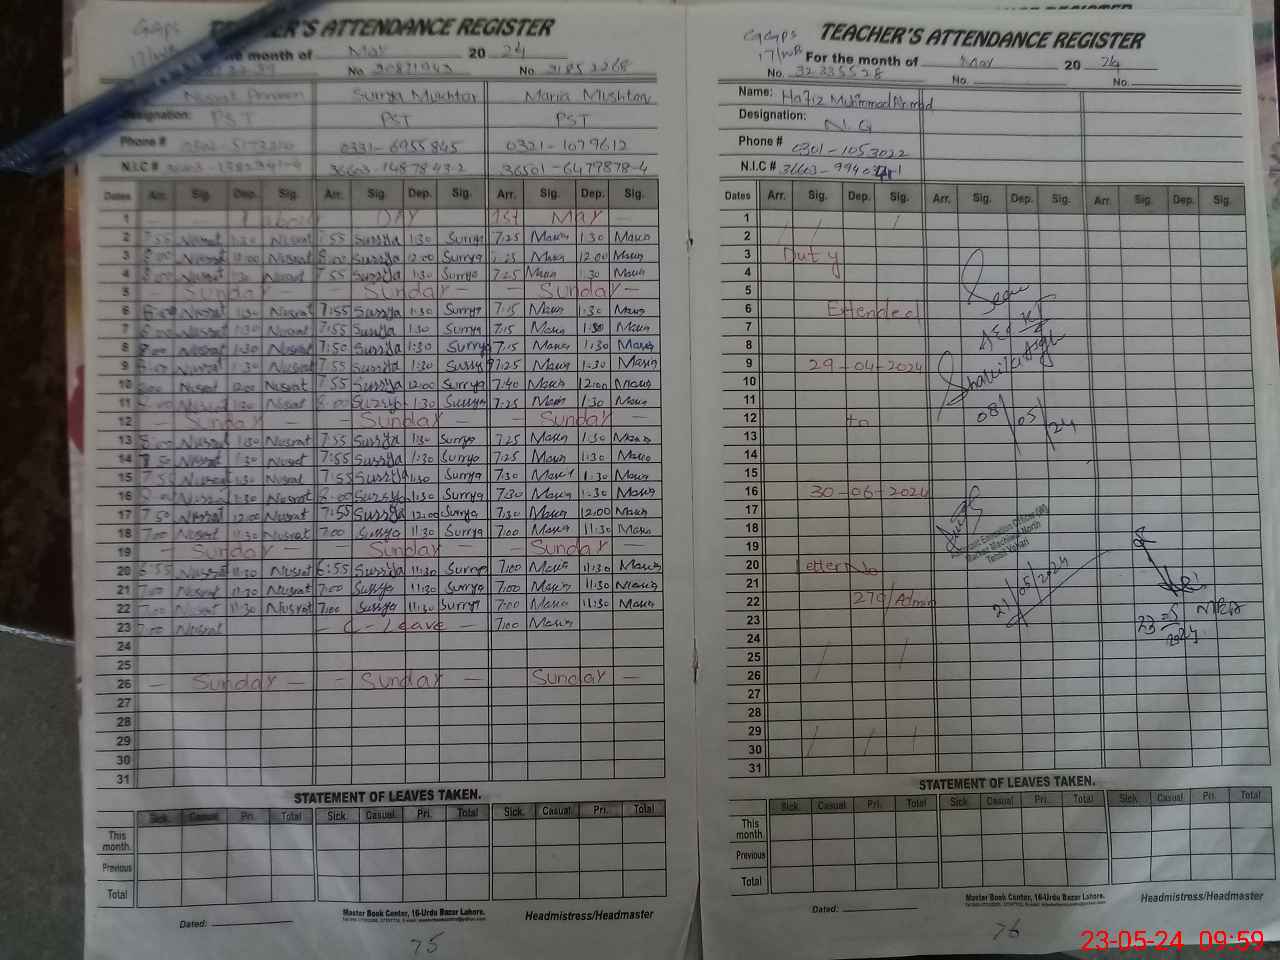 TEACHER'S ATTENDANCE REGISTER
GGPS
17/WB
the month of May 20 24
No 20871943 No. 31852268
Nusrat Surrya Mukhtar Maria Mushtaq
Designation: PST PST PST
Phone # 0331-6955845 0321-1079612
N.I.C # 36501-6479878-4
Dates Arr. Sig. Dep. Sig. Arr. Sig. Dep. Sig. Arr. Sig. Dep. Sig.
1 — Labour DAY 1st May —
2 7:55 Nusrat 1:30 Nusrat 7:55 Surrya 1:30 Surrya 7:25 Maria 1:30 Maria
3 8:00 Nusrat 12:00 Nusrat 8:00 Surrya 12:00 Surrya 7:25 Maria 12:00 Maria
4 8:00 Nusrat 1:30 Nusrat 7:55 Surrya 1:30 Surrya 7:25 Maria 1:30 Maria
5 — Sunday — — Sunday — — Sunday —
6 8:00 Nusrat 1:30 Nusrat 7:55 Surrya 1:30 Surrya 7:15 Maria 1:30 Maria
7 8:00 Nusrat 1:30 Nusrat 7:55 Surrya 1:30 Surrya 7:15 Maria 1:30 Maria
8 8:00 Nusrat 1:30 Nusrat 7:50 Surrya 1:30 Surrya 7:15 Maria 1:30 Maria
9 8:00 Nusrat 1:30 Nusrat 7:55 Surrya 1:30 Surrya 7:25 Maria 1:30 Maria
10 8:00 Nusrat 12:00 Nusrat 7:55 Surrya 12:00 Surrya 7:40 Maria 12:00 Maria
11 8:00 Nusrat 1:30 Nusrat 8:00 Surrya 1:30 Surrya 7:25 Maria 1:30 Maria
12 — Sunday — — Sunday — — Sunday —
13 8:00 Nusrat 1:30 Nusrat 7:55 Surrya 1:30 Surrya 7:25 Maria 1:30 Maria
14 7:50 Nusrat 1:30 Nusrat 7:55 Surrya 1:30 Surrya 7:25 Maria 1:30 Maria
15 7:55 Nusrat 1:30 Nusrat 7:55 Surrya 1:30 Surrya 7:30 Maria 1:30 Maria
16 8:00 Nusrat 1:30 Nusrat 8:00 Surrya 1:30 Surrya 7:30 Maria 1:30 Maria
17 7:50 Nusrat 12:00 Nusrat 7:55 Surrya 12:00 Surrya 7:30 Maria 12:00 Maria
18 7:00 Nusrat 11:30 Nusrat 7:00 Surrya 11:30 Surrya 7:00 Maria 11:30 Maria
19 — Sunday — — Sunday — — Sunday —
20 6:55 Nusrat 11:30 Nusrat 6:55 Surrya 11:30 Surrya 7:00 Maria 11:30 Maria
21 7:00 Nusrat 11:30 Nusrat 7:00 Surrya 11:30 Surrya 7:00 Maria 11:30 Maria
22 7:00 Nusrat 11:30 Nusrat 7:00 Surrya 11:30 Surrya 7:00 Maria 11:30 Maria
23 7:00 Nusrat — C-Leave — 7:00 Maria
24
25
26 — Sunday — — Sunday — Sunday —
27
28
29
30
31
STATEMENT OF LEAVES TAKEN.
Sick. Casual. Pri. Total Sick. Casual. Pri. Total Sick. Casual. Pri. Total
This month.
Previous
Total
Dated:
Master Book Center, 16-Urdu Bazar Lahore.
Headmistress/Headmaster
75
TEACHER'S ATTENDANCE REGISTER
GGPS
17/WB
For the month of May 20 24
No. 32335528 No. No.
Name: Hafiz Muhammad Ahmad
Designation: N.Q
Phone # 0301-1053022
N.I.C #
Dates Arr. Sig. Dep. Sig. Arr. Sig. Dep. Sig. Arr. Sig. Dep. Sig.
1
2
3 Duty
4
5
6 Extended
7
8
9 29-04-2024
10
11
12 to
13
14
15
16 30-06-2024
17
18
19
20 Letter No
21
22 270/Admin
23
24
25
26
27
28
29
30
31
Seen
08/05/24
21/05/2024
23-5
2024
STATEMENT OF LEAVES TAKEN.
Sick. Casual. Pri. Total Sick. Casual. Pri. Total Sick. Casual. Pri. Total
This month.
Previous
Total
Dated:
Master Book Center, 16-Urdu Bazar Lahore.
Headmistress/Headmaster
76
23-05-24 09:59